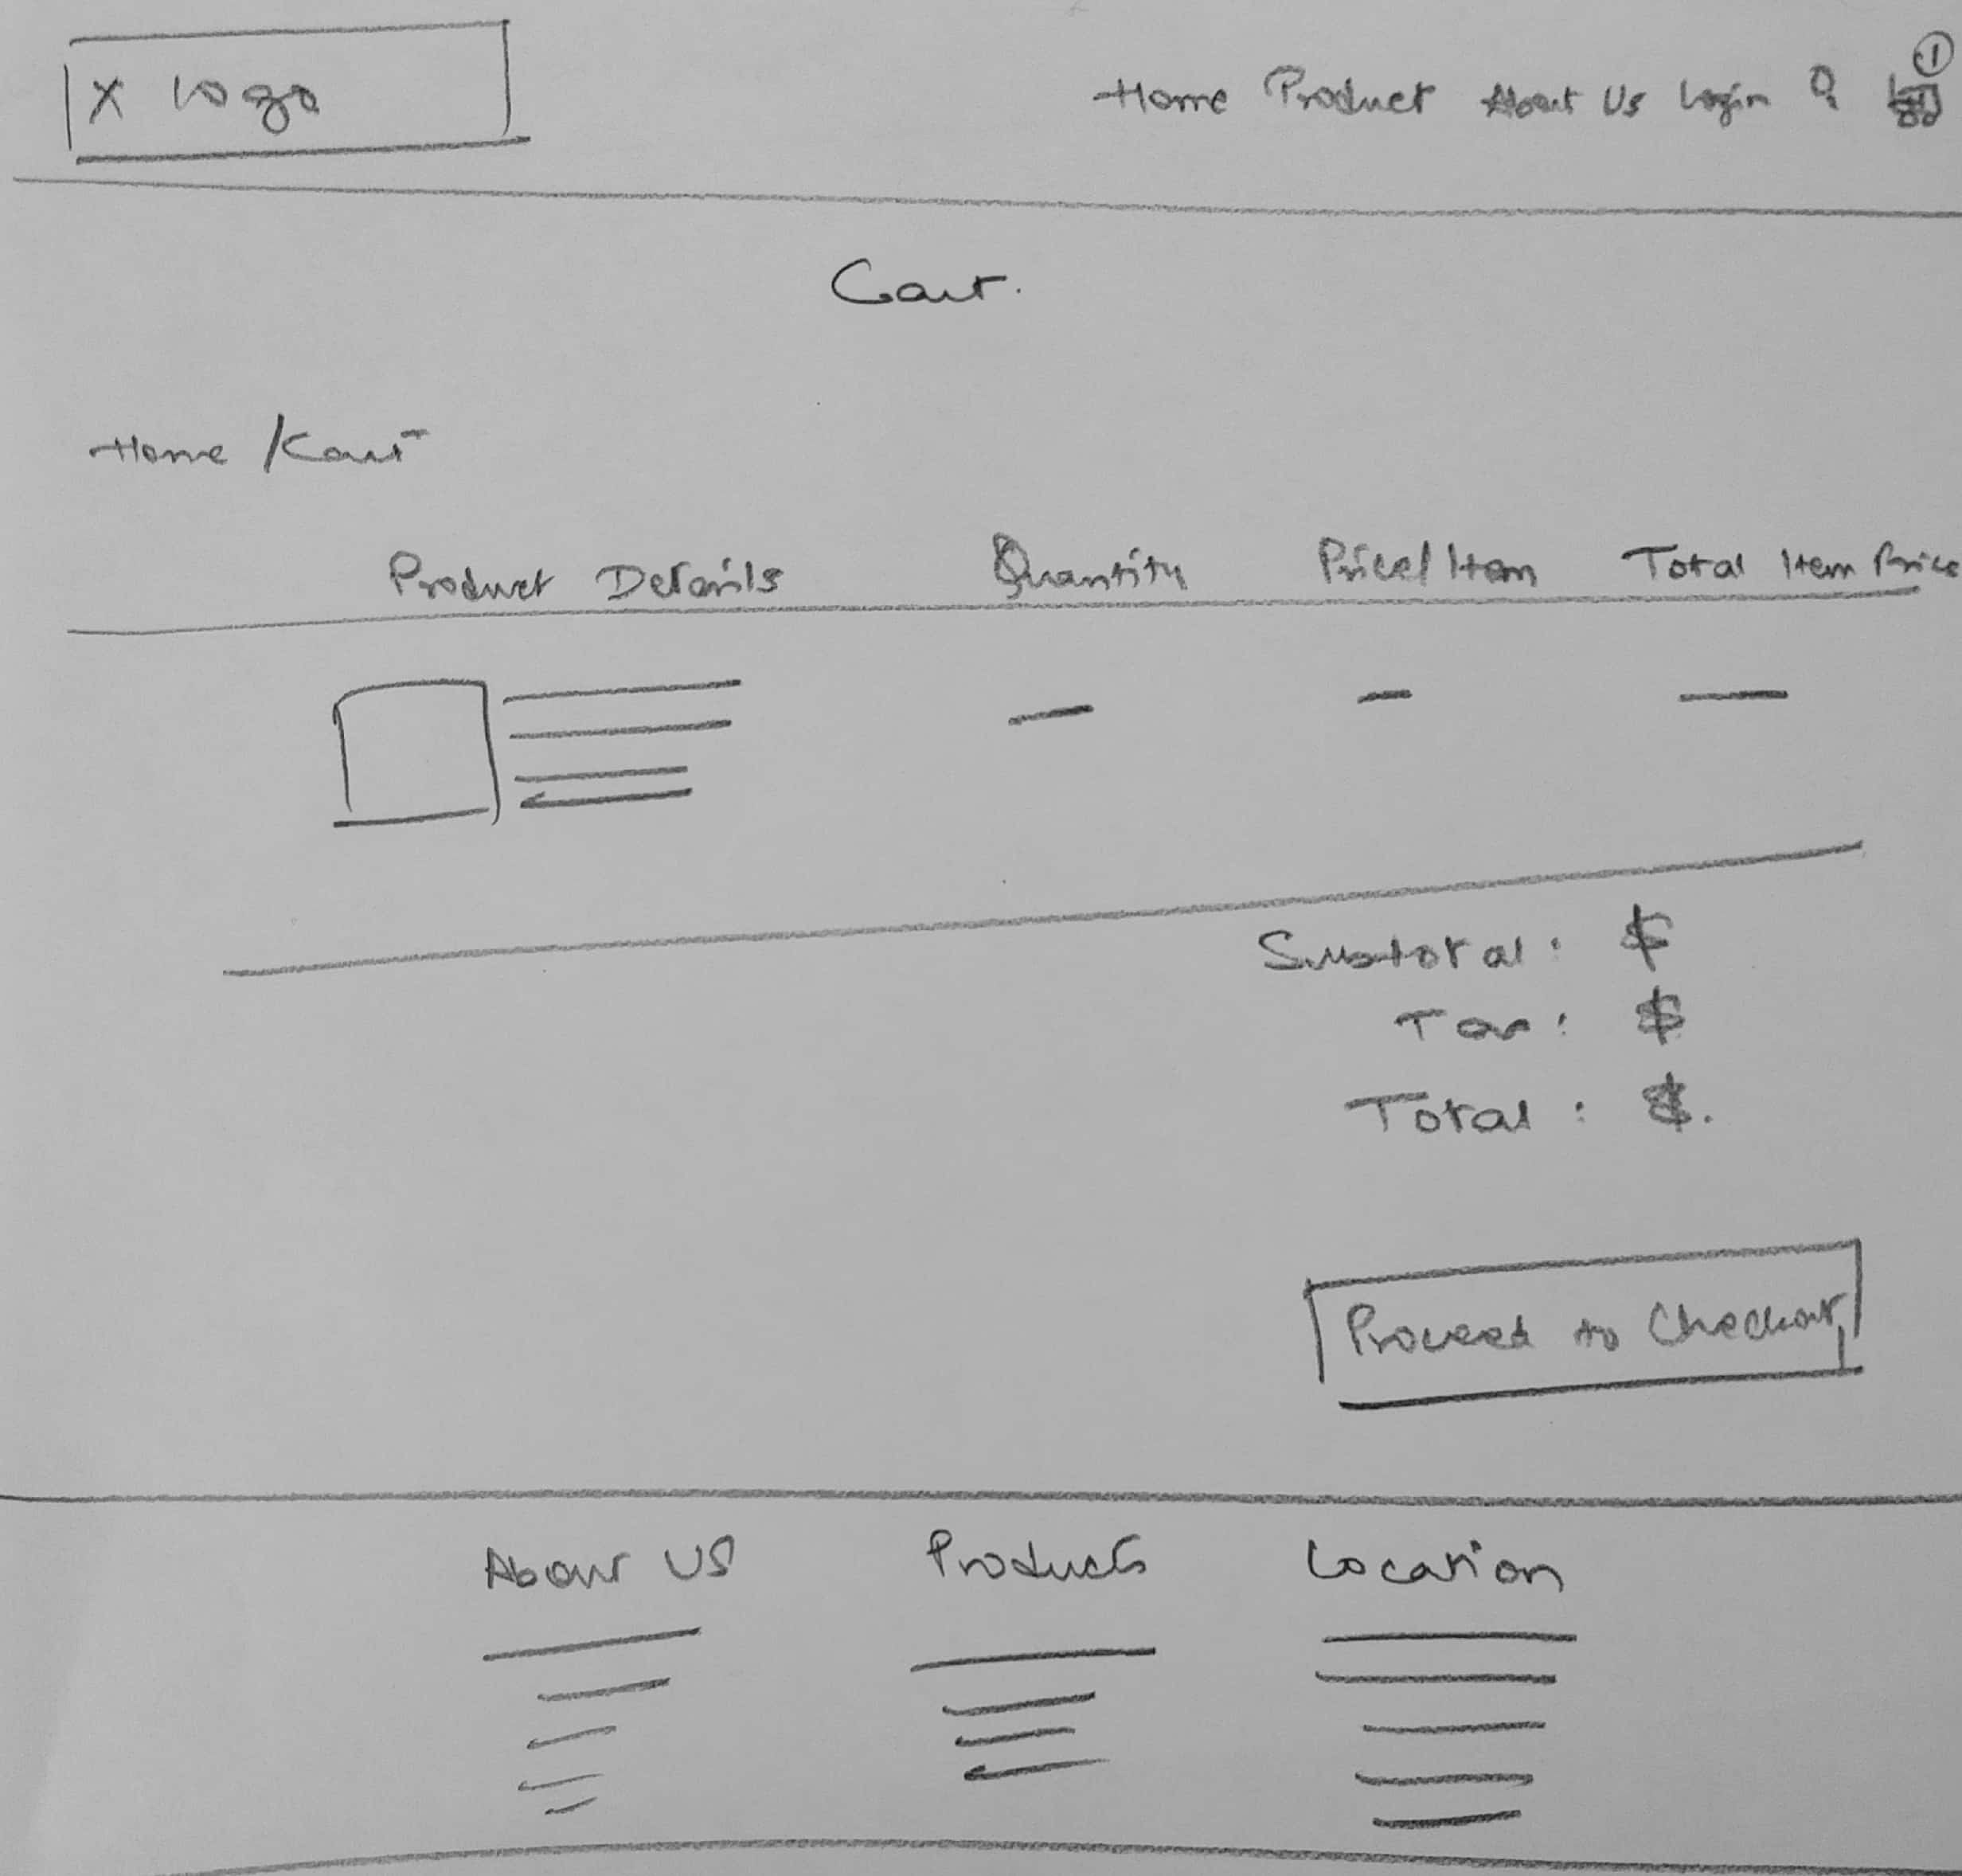 X logo
Home Product About Us Login 1
Cart.
Home / Cart
Product Details Quantity Price/Item Total Item Price
Subtotal: $
Tax: $
Total: $.
Proceed to Checkout
About US Products Location